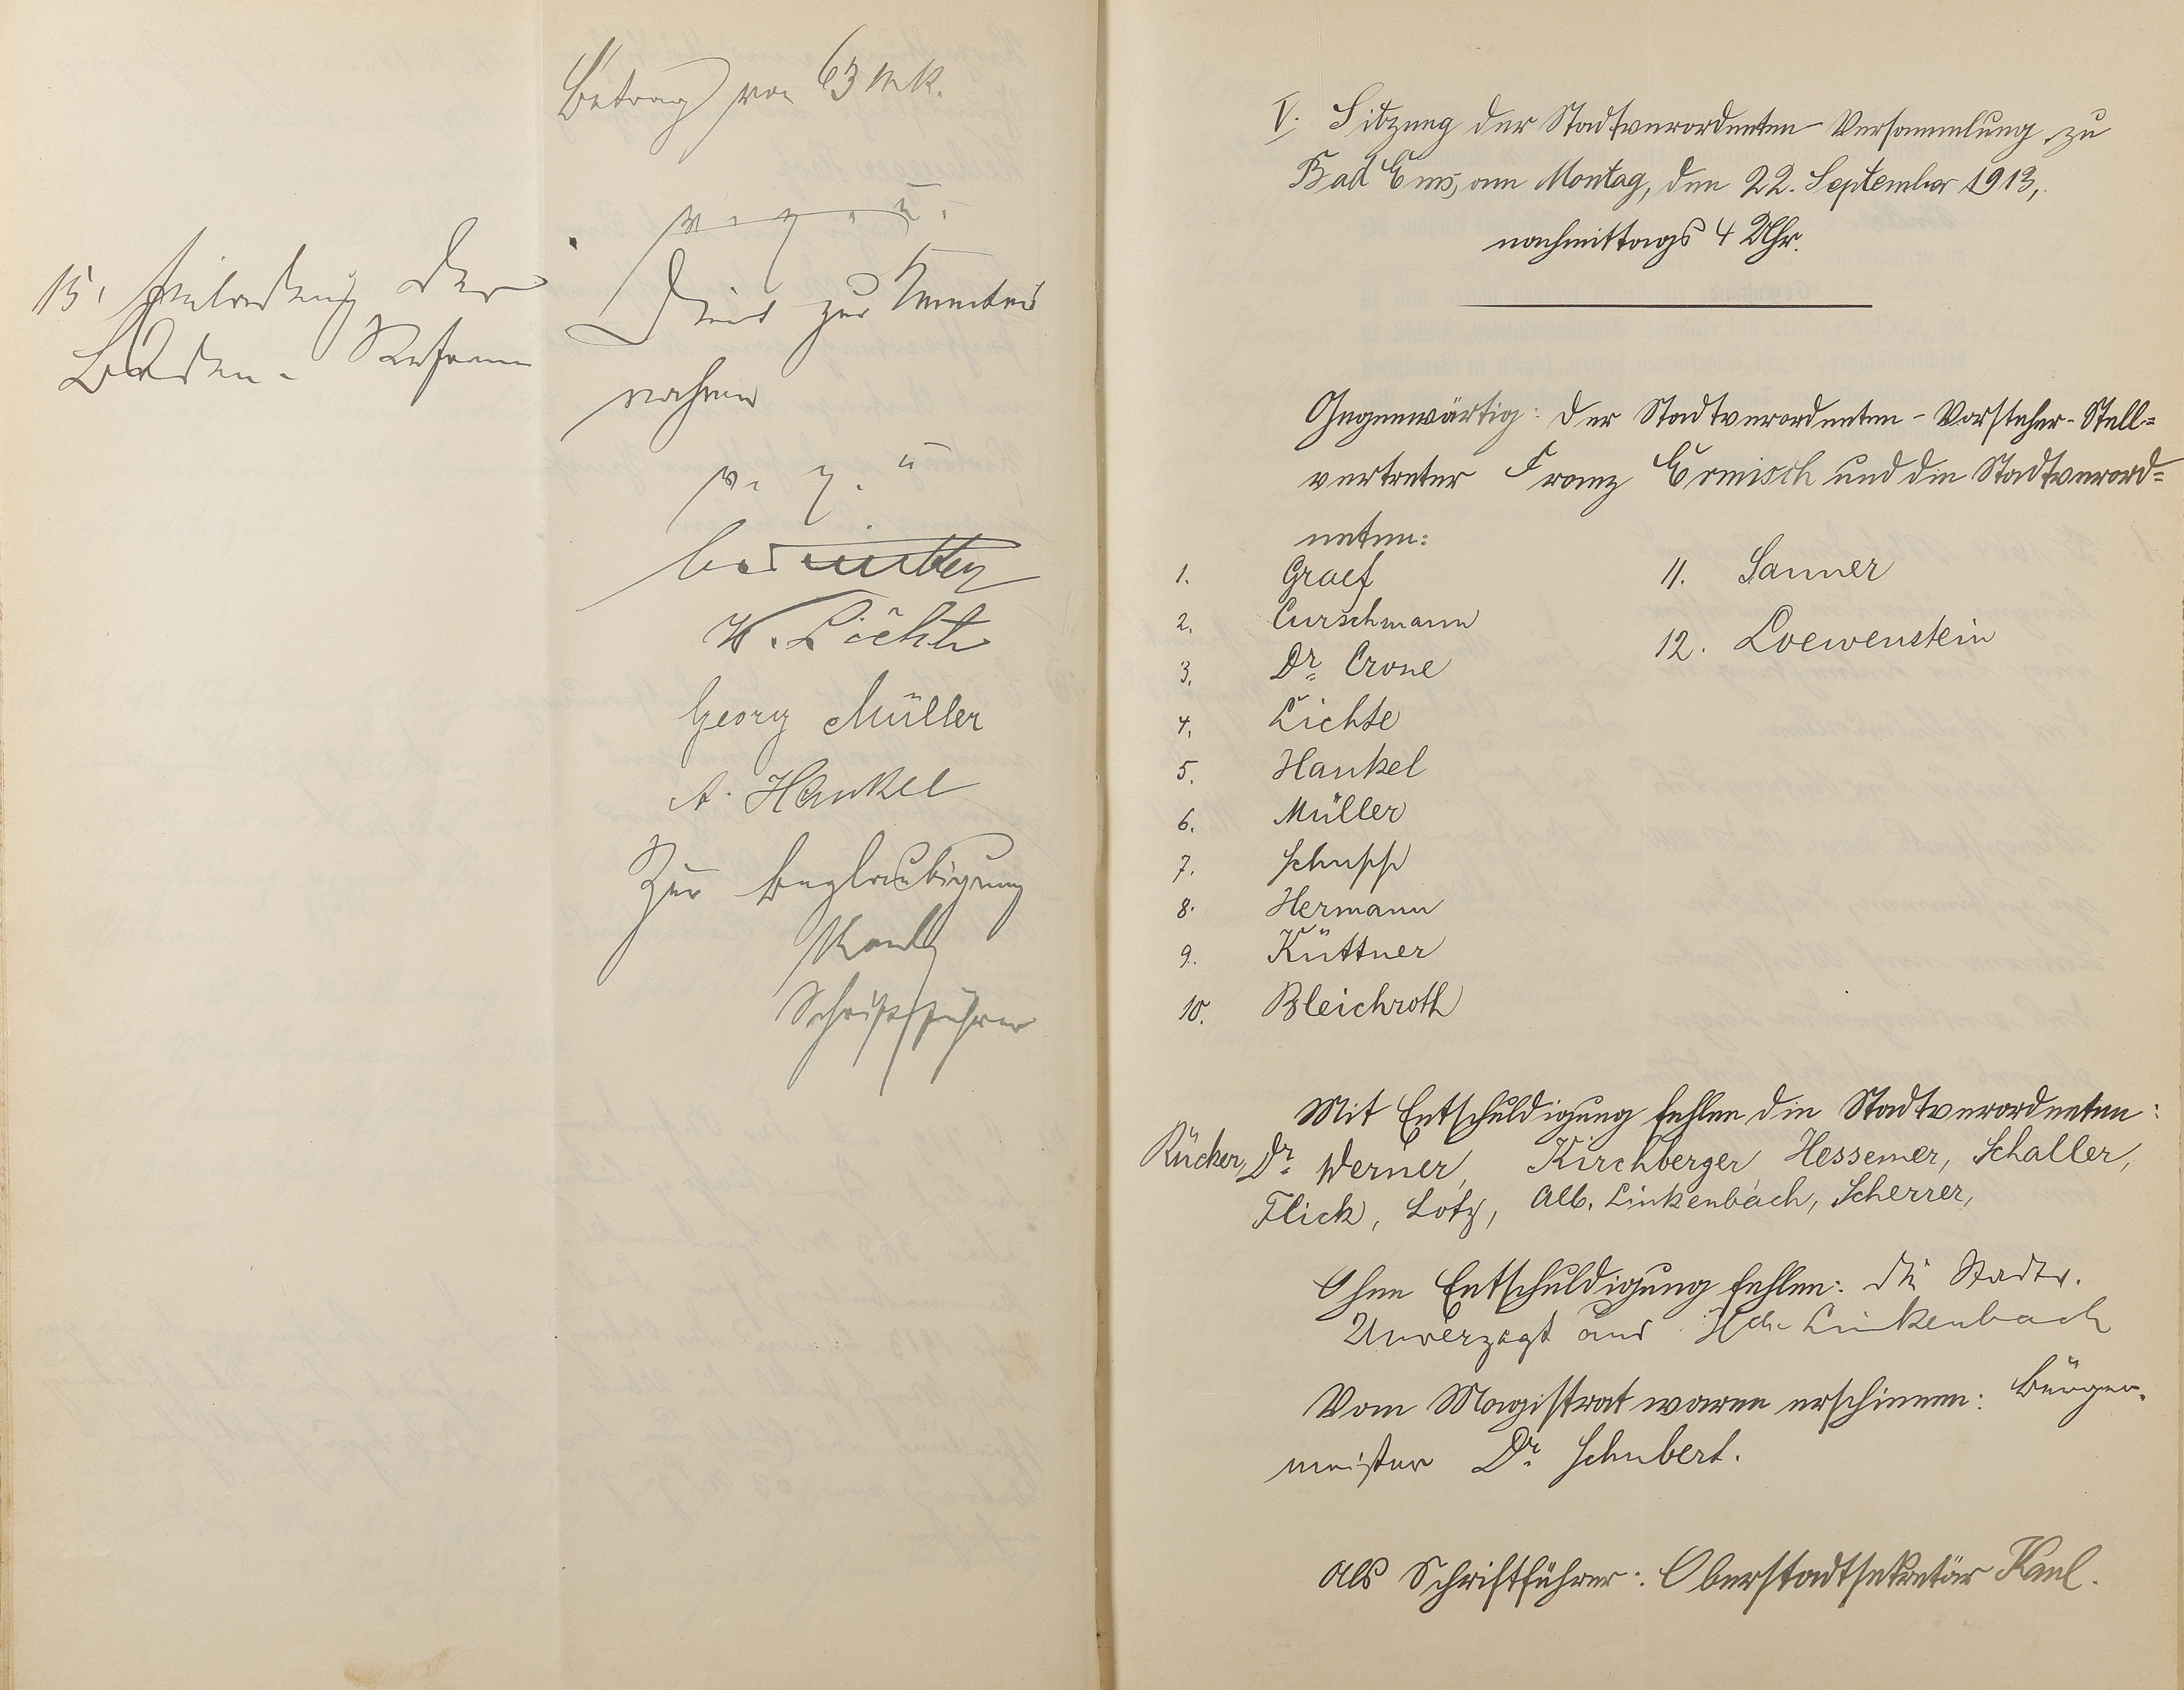 Betrag von 63 Mk.
v. g. u.
15. Einladung der
Boden-Reform
Dient zur Kenntnis
nahme
v. g. u.
Georg Müller
A. Hankel
Zur Beglaubigung
Kaul
Schriftführer
V. Sitzung der Stadtverordneten-Versammlung zu
Bad Ems, am Montag, den 22. September 1913,
nachmittags 4 Uhr.
Gegenwärtig: Der Stadtverordneten-Vorsteher-Stell=
vertreter Franz Ermisch und die Stadtverord=
neten:
1. Graef
2. Curschmann
3. Dr. Crone
4. Lichte
5. Hankel
6. Müller
7. Schupp
8. Hermann
9. Küttner
10. Bleichroth
11. Sanner
12. Loewenstein
Mit Entschuldigung fehlen die Stadtverordneten:
Rücker, Dr. Werner, Kirchberger Hessemer, Schaller,
Flick, Lotz, Alb. Linkenbach, Scherrer,
Ohne Entschuldigung fehlen: die Stadtv.
Unverzagt und Hch. Linkenbach
Vom Magistrat waren erschienen: Bürger-
meister Dr. Schubert.
Als Schriftführer: Oberstadtsekretär Kaul.